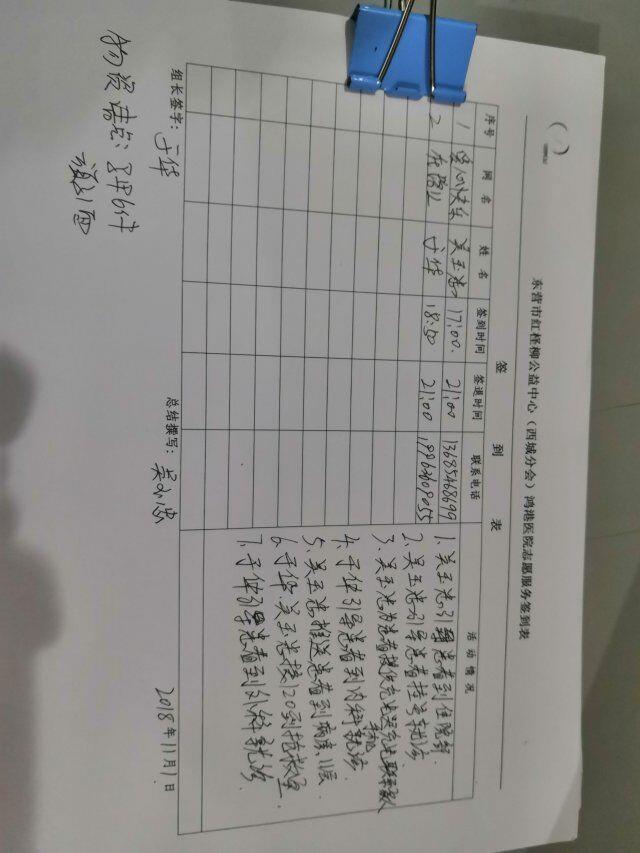 东营市红柽柳公益中心（西城分会）鸿港医院志愿服务签到表
签 到 表
序号 网名 姓名 签到时间 签退时间 联系电话 活动情况
1 吴玉忠 17:00 21:00 13685468699
2 于华 18:50 21:00
1、吴玉忠引导患者到住院部
2、吴玉忠引导患者挂号就诊
3、吴玉忠为患者提供充电器充电
4、于华引导患者到内科就诊
5、吴玉忠推送患者到病房11层
6、于华、吴玉忠接120到抢救室
7、于华引导患者到外科就诊
组长签字：于华 总结撰写： 2018年11月1日
物资清点：